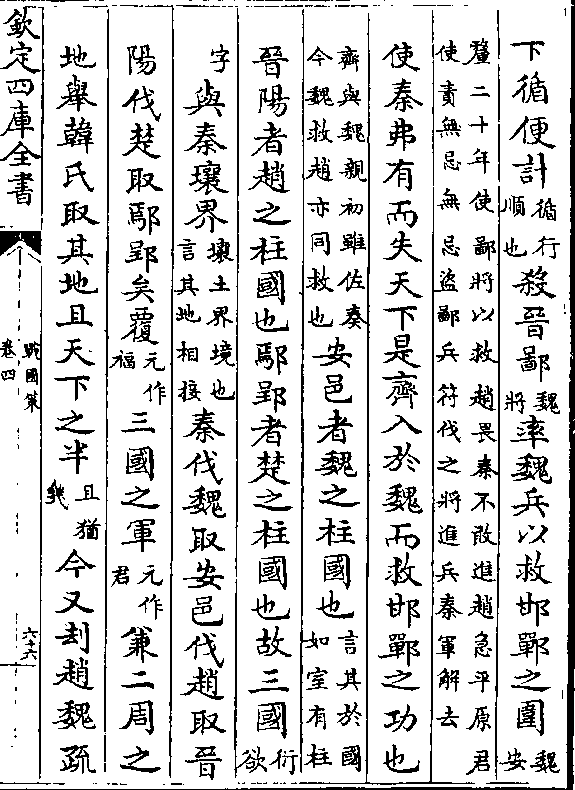 下循便計循行順也殺晉鄙魏將率魏兵以救邯鄲之圍魏安
釐二十年使鄙將以救趙畏秦不敢進趙急平原君
使責無忌無忌盜鄙兵符伐之將進兵秦軍解去
使秦弗有而失天下是齊入於魏而救邯鄲之功也
齊與魏親初雖佐秦今魏救趙亦同救也安邑者魏之柱國也言其於國如室有柱
晉陽者趙之柱國也鄢郢者楚之柱國也故三國衍欲
字與秦壤界壤土界境也言其地相接秦伐魏取安邑伐趙取晉
陽伐楚取鄢郢矣覆元作福三國之軍元作君兼二周之
地舉韓氏取其地且天下之半且猶幾今又刦趙魏疏
欽定四庫全書
戰國策
卷四
六十六